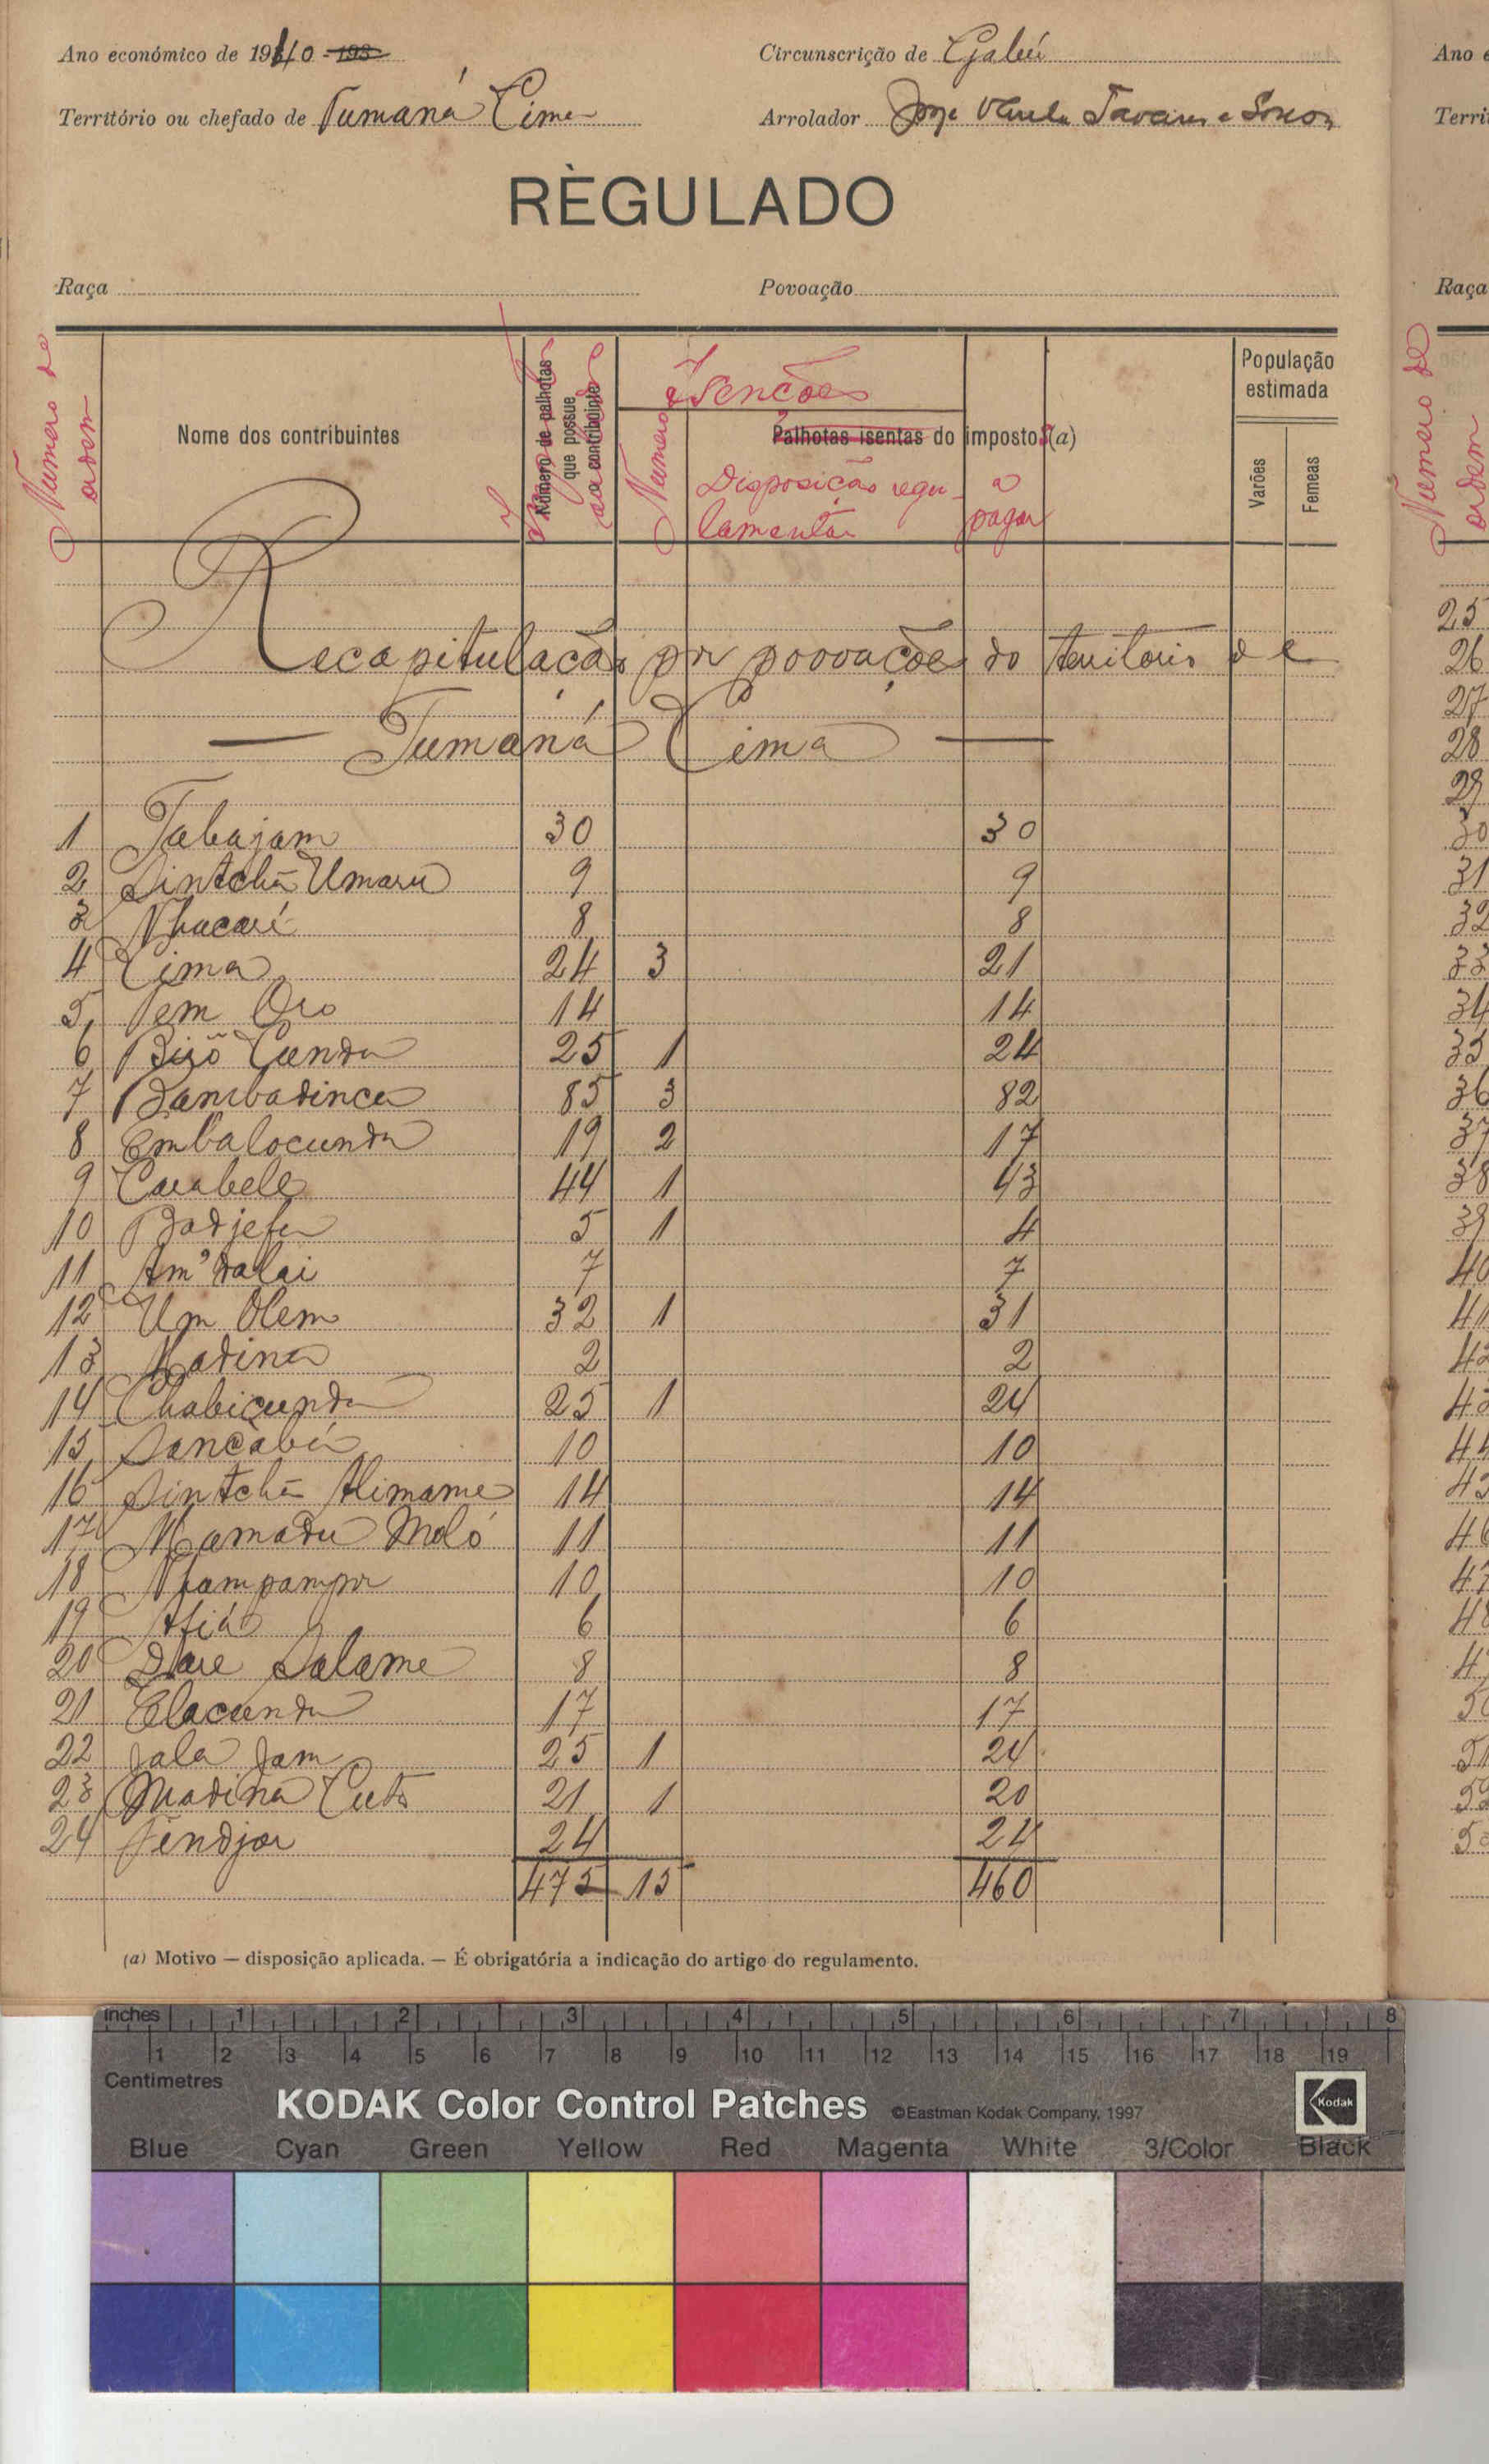 Ano económico de 1940 - 193
Circunscrição de Gabú
Território ou chefado de Tumaná Cima
Arrolador Jorge Tavares e Sousa
RÈGULADO
Raça
Povoação
Numero de ordem
Nome dos contribuintes
Número de palhotas que possue o contribuinte
Isenções
Numero
Palhotas isentas do impostos (a)
Disposição regulamentar
a pagar
População estimada
Varões
Femeas
Recapitulação por povoações do territorio de
— Tumaná Cima —
1 Tabajam 30 30
2 Sintchã Umaru 9 9
3 Nhacaré 8 8
4 Cima 24 3 21
5 Tem Oro 14 14
6 Bijó Cunda 25 1 24
7 Bambadinca 85 3 82
8 Embalocunda 19 2 17
9 Carabele 44 1 43
10 Badjefa 5 1 4
11 Am'dalai 7 7
12 Um Olem 32 1 31
13 Madina 2 2
14 Chabicunda 25 1 24
15 10 10
16 Sintchã Alimame 14 14
17 Mamadu Moló 11 11
18 Nhampampor 10 10
19 Afiá 6 6
20 Dare Salame 8 8
21 Elacunda 17 17
22 Jala Jam 25 1 24
23 Madina Cuto 21 1 20
24 Fendjor 24 24
475 15 460
(a) Motivo — disposição aplicada. — É obrigatória a indicação do artigo do regulamento.
Ano e
Terri
Raça
Numero de ordem
25
26
27
28
29
30
31
32
33
34
35
36
37
38
39
40
41
42
43
44
45
46
47
48
4
50
51
52
53
inches 1 2 3 4 5 6 7 8
1 2 3 4 5 6 7 8 9 10 11 12 13 14 15 16 17 18 19
Centimetres
KODAK Color Control Patches ©Eastman Kodak Company, 1997 Kodak
Blue Cyan Green Yellow Red Magenta White 3/Color Black